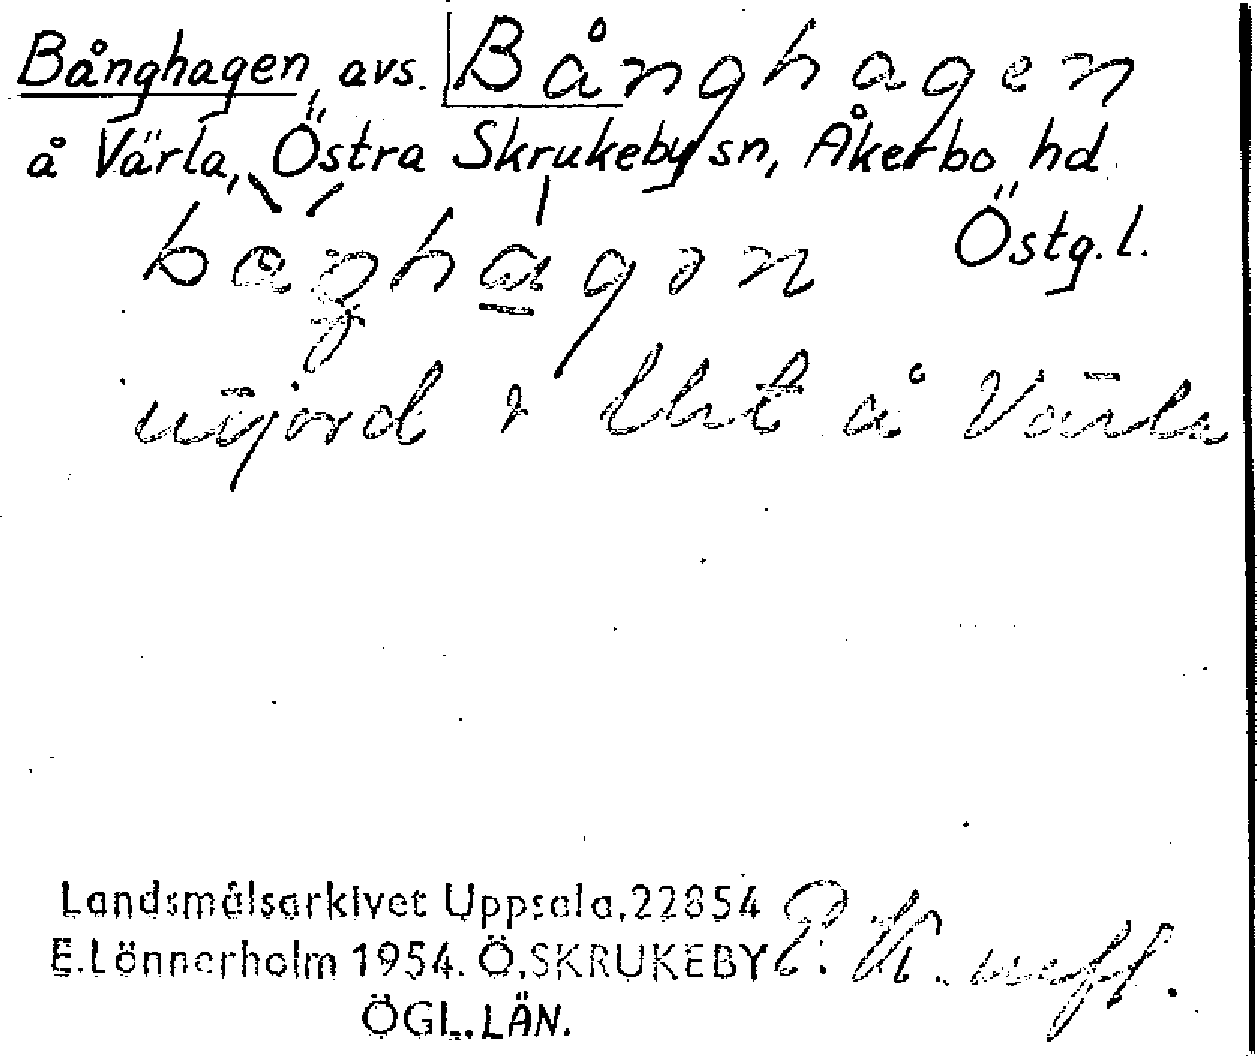 Bånghagen, avs. Bånghagen
å Värla, Östra Skrukeby sn, Åkerbo hd
Östg. l.
nyjord å Värla
Landsmålsarkivet Uppsala, 22854
E. Lönnerholm 1954. Ö. SKRUKEBY
ÖGL. LÄN.